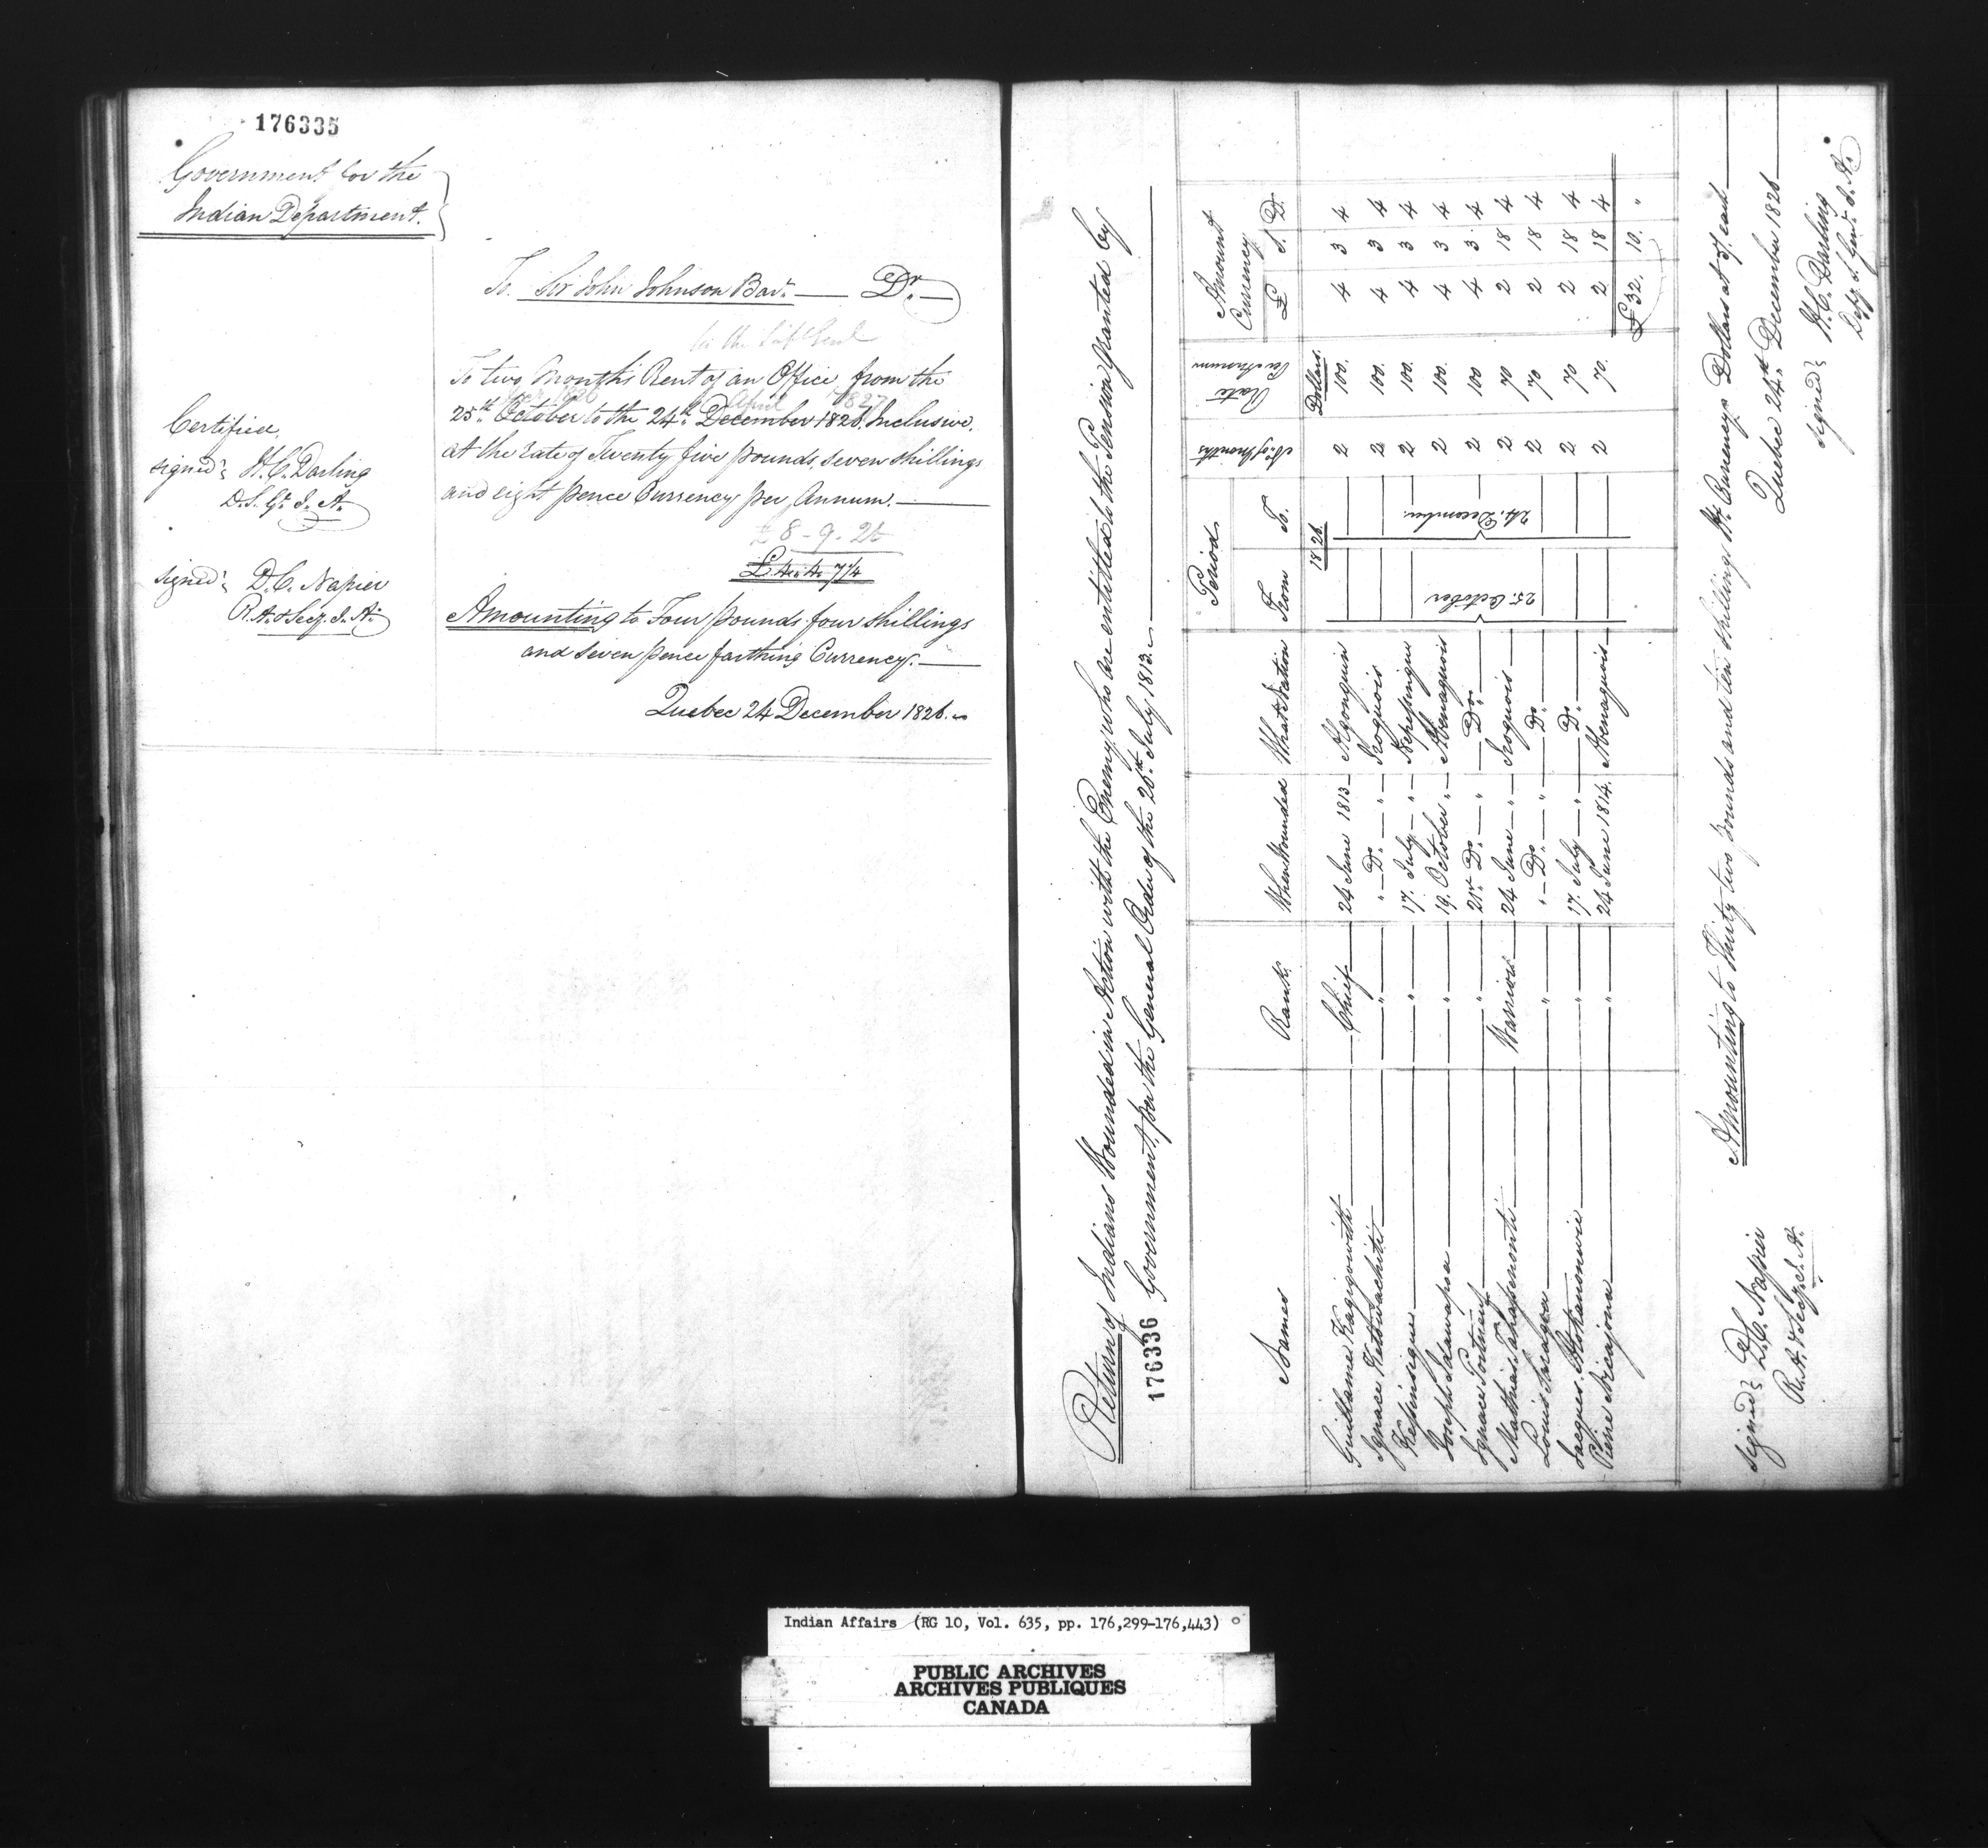 176335
Government for the
Indian Department.
To Sir John Johnson Bart. — Dr. —
To two Months Rent of an Office, from the
25th October to the 24th December 1826. Inclusive,
at the rate of Twenty five pounds, seven shillings
and eight pence Currency per Annum. —
£ 8 - 9 - 2½
£ 4 „ 4 „ 7 1/4
Amounting to Four pounds four shillings
and seven pence farthing Currency. —
Quebec 24 December 1826.
Certified,
signed H. C. Darling
D. S. Gl. I. A.
signed D. C. Napier
R. A. & Secy. I. A.
Return of Indians Wounded in Action with the Enemy, who are entitled to the Pension granted by
176336 Government, per the General Order of the 26th July, 1813.
Names Rank When Wounded What Nation Period No. of Months Rate Per Annum Amount Currency
From To £ S. D.
1826 Dollars
Guillaume Chief 24 June 1813 Algonquin 2 100. 4 3 4
Ignace " " Do. " Iroquois 2 100. 4 3 4
" 17. July " 2 100. 4 3 4
Joseph " 19. October " Abenaquois 2 100. 4 3 4
Ignace " 21st Do. " Do. 2 100 4 3 4
Mathias Warrior 24 June " Iroquois 2 70 2 18 4
Louis " " Do. " Do. 2 70 2 18 4
Jacques " 17. July " Do. 2 70 2 18 4
Pierre " 24 June 1814. Abenaquois 2 70. 2 18 4
25. October 24. December
£ 32. 10. "
Amounting to Thirty two pounds and ten shillings Hx. Currency Dollars at 5/. each
Quebec 24th December 1826
signed D. C. Napier
R. A. & Secy. I. A.
signed H. C. Darling
Depy. S. Genl. I. A.
Indian Affairs (RG 10, Vol. 635, pp. 176,299-176,443)
PUBLIC ARCHIVES
ARCHIVES PUBLIQUES
CANADA